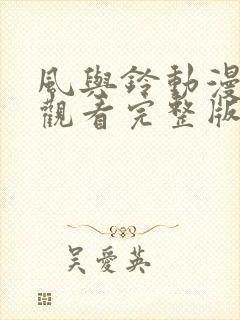 風與鈴動漫
觀看完整版
吴愛英